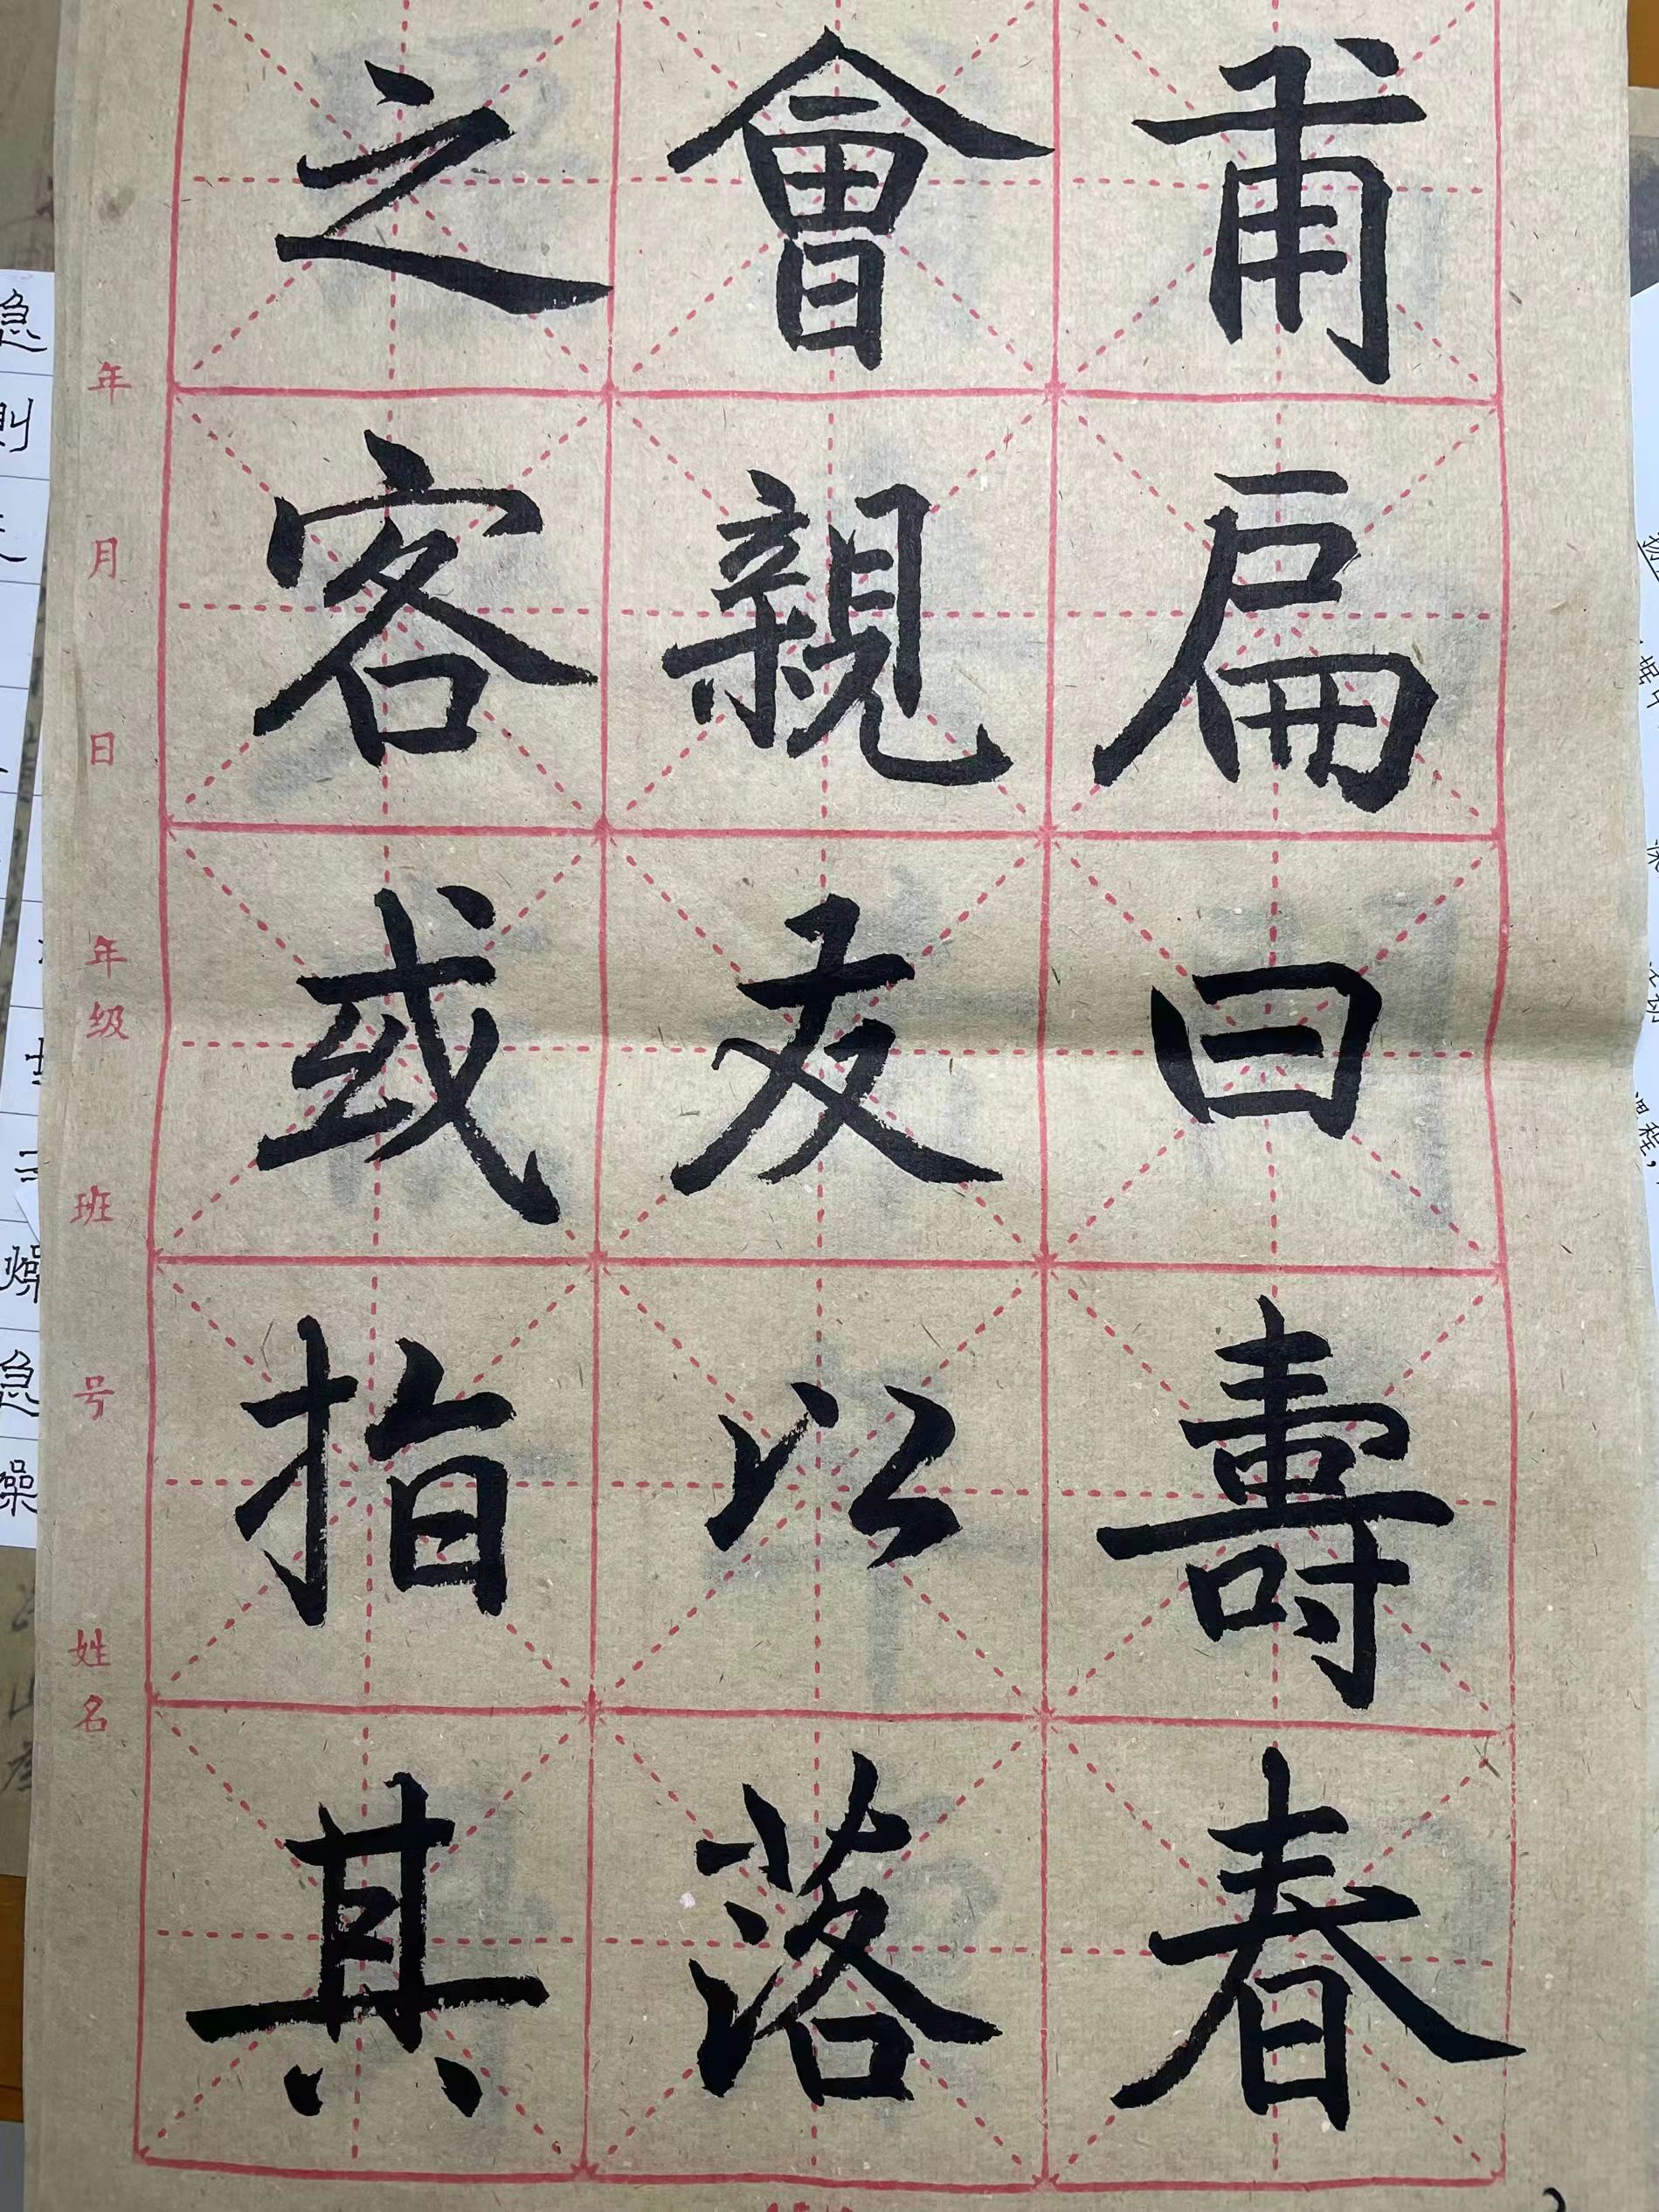 甫扁曰壽春
會親友以落
之客或指其
年月日
年级
班
号
姓名
急
則
燥
急
課程，